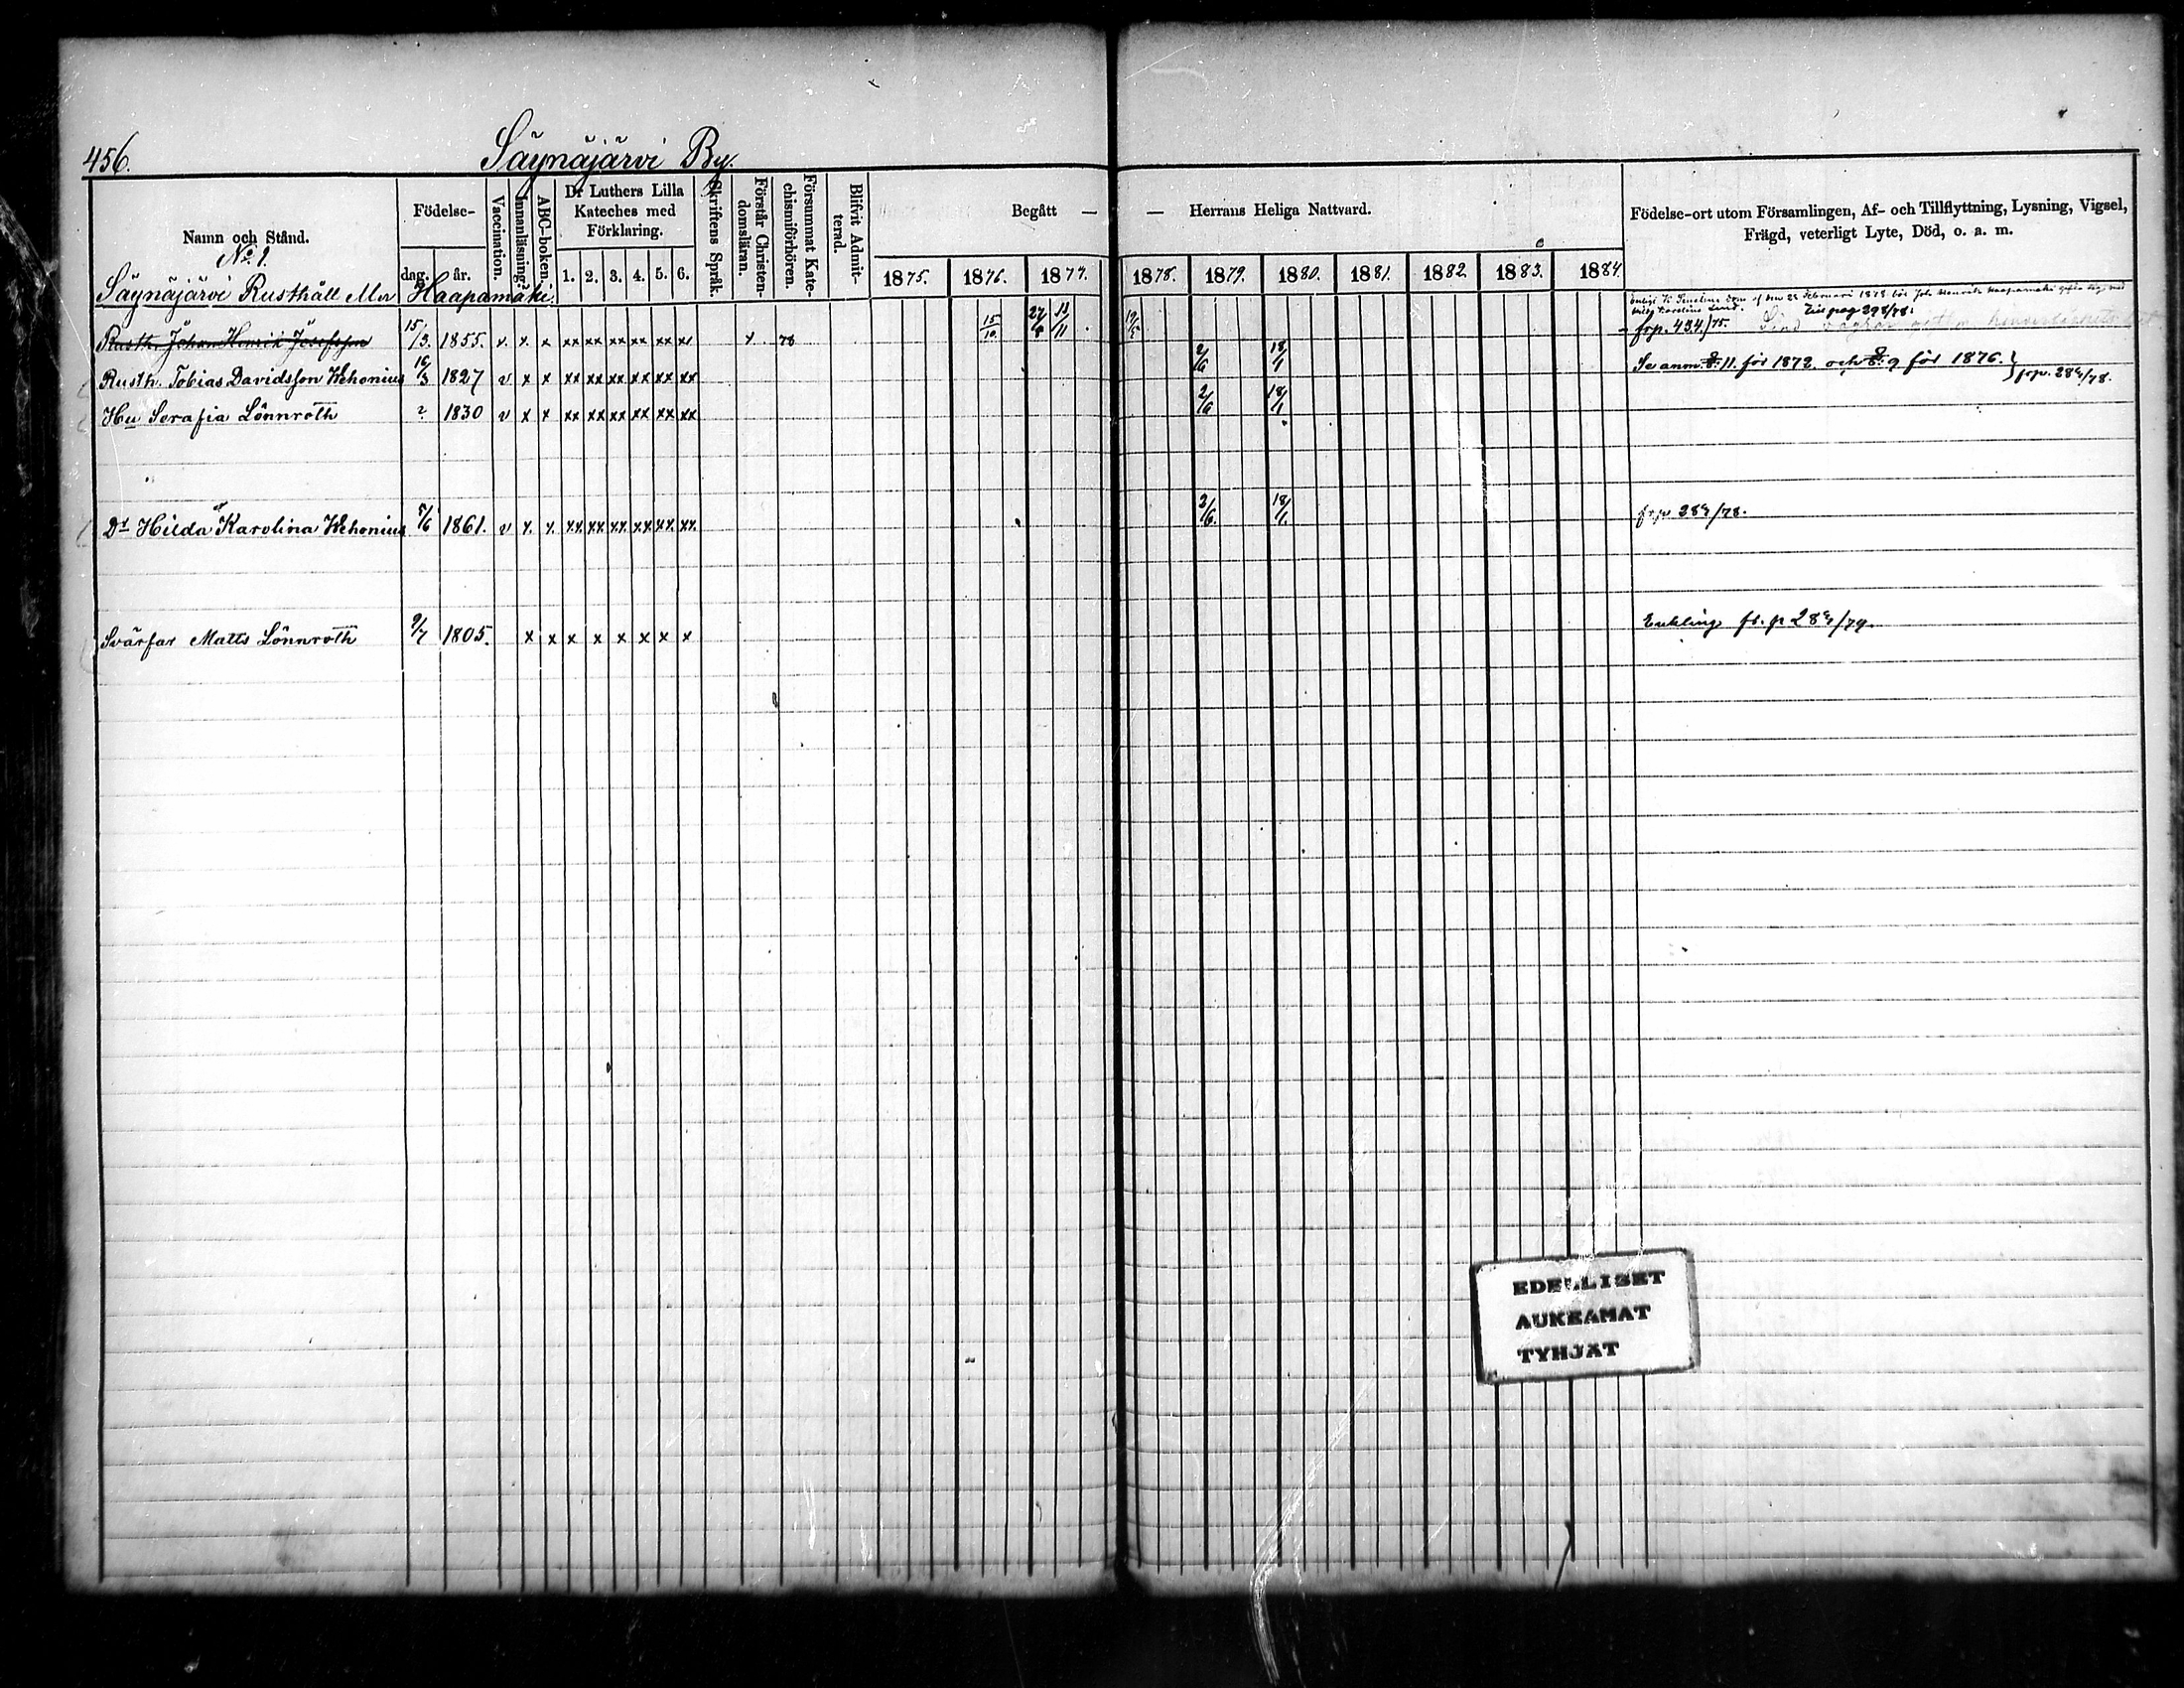 456.
Säynäjärvi By.
Namn och Stånd.
Födelse-
dag. år.
Vaccination.
Innanläsning.
ABC-boken.
Dr Luthers Lilla
Kateches med
Förklaring.
1. 2. 3. 4. 5. 6.
Skriftens Språk.
Förstår Christen-
domsläran.
Försummat Kate-
chismiförhören.
Blifvit Admit-
terad.
Begått — — Herrans Heliga Nattvard.
1875. 1876. 1877. 1878. 1879. 1880. 1881. 1882. 1883. 1884.
Födelse-ort utom Församlingen, Af- och Tillflyttning, Lysning, Vigsel,
Frägd, veterligt Lyte, Död, o. a. m.
No 1.
Säynäjärvi Rusthåll eller Haapamäki.
Februari 1878
Karolina Lind. Till pag 298/78.
Rusth. Johan Henrik Josefsson 15/3. 1855. x. x. x xx xx xx xx xx xx x 78 15/10. 27/8 11/11 19/5 frp. 434/75.
Rusth. Tobias Davidsson Kehonius 16/3 1827 v x x xx xx xx xx xx xx 2/6 18/1 Se anm. 11. för 1872. och 9 för 1876. } frp. 289/78.
Hu Serafia Lönnroth ? 1830 v x x xx xx xx xx xx xx 2/6 18/1
Dt Hilda Karolina Kehonius 5/6 1861. v x. x. xx xx xx xx xx xx 2/6. 18/1. frp 289/78.
Svärfar Matts Lönnroth 9/7 1805. x x x x x x x x Enkling fr. p 289/79.
EDELLISET
AUKEAMAT
TYHJÄT